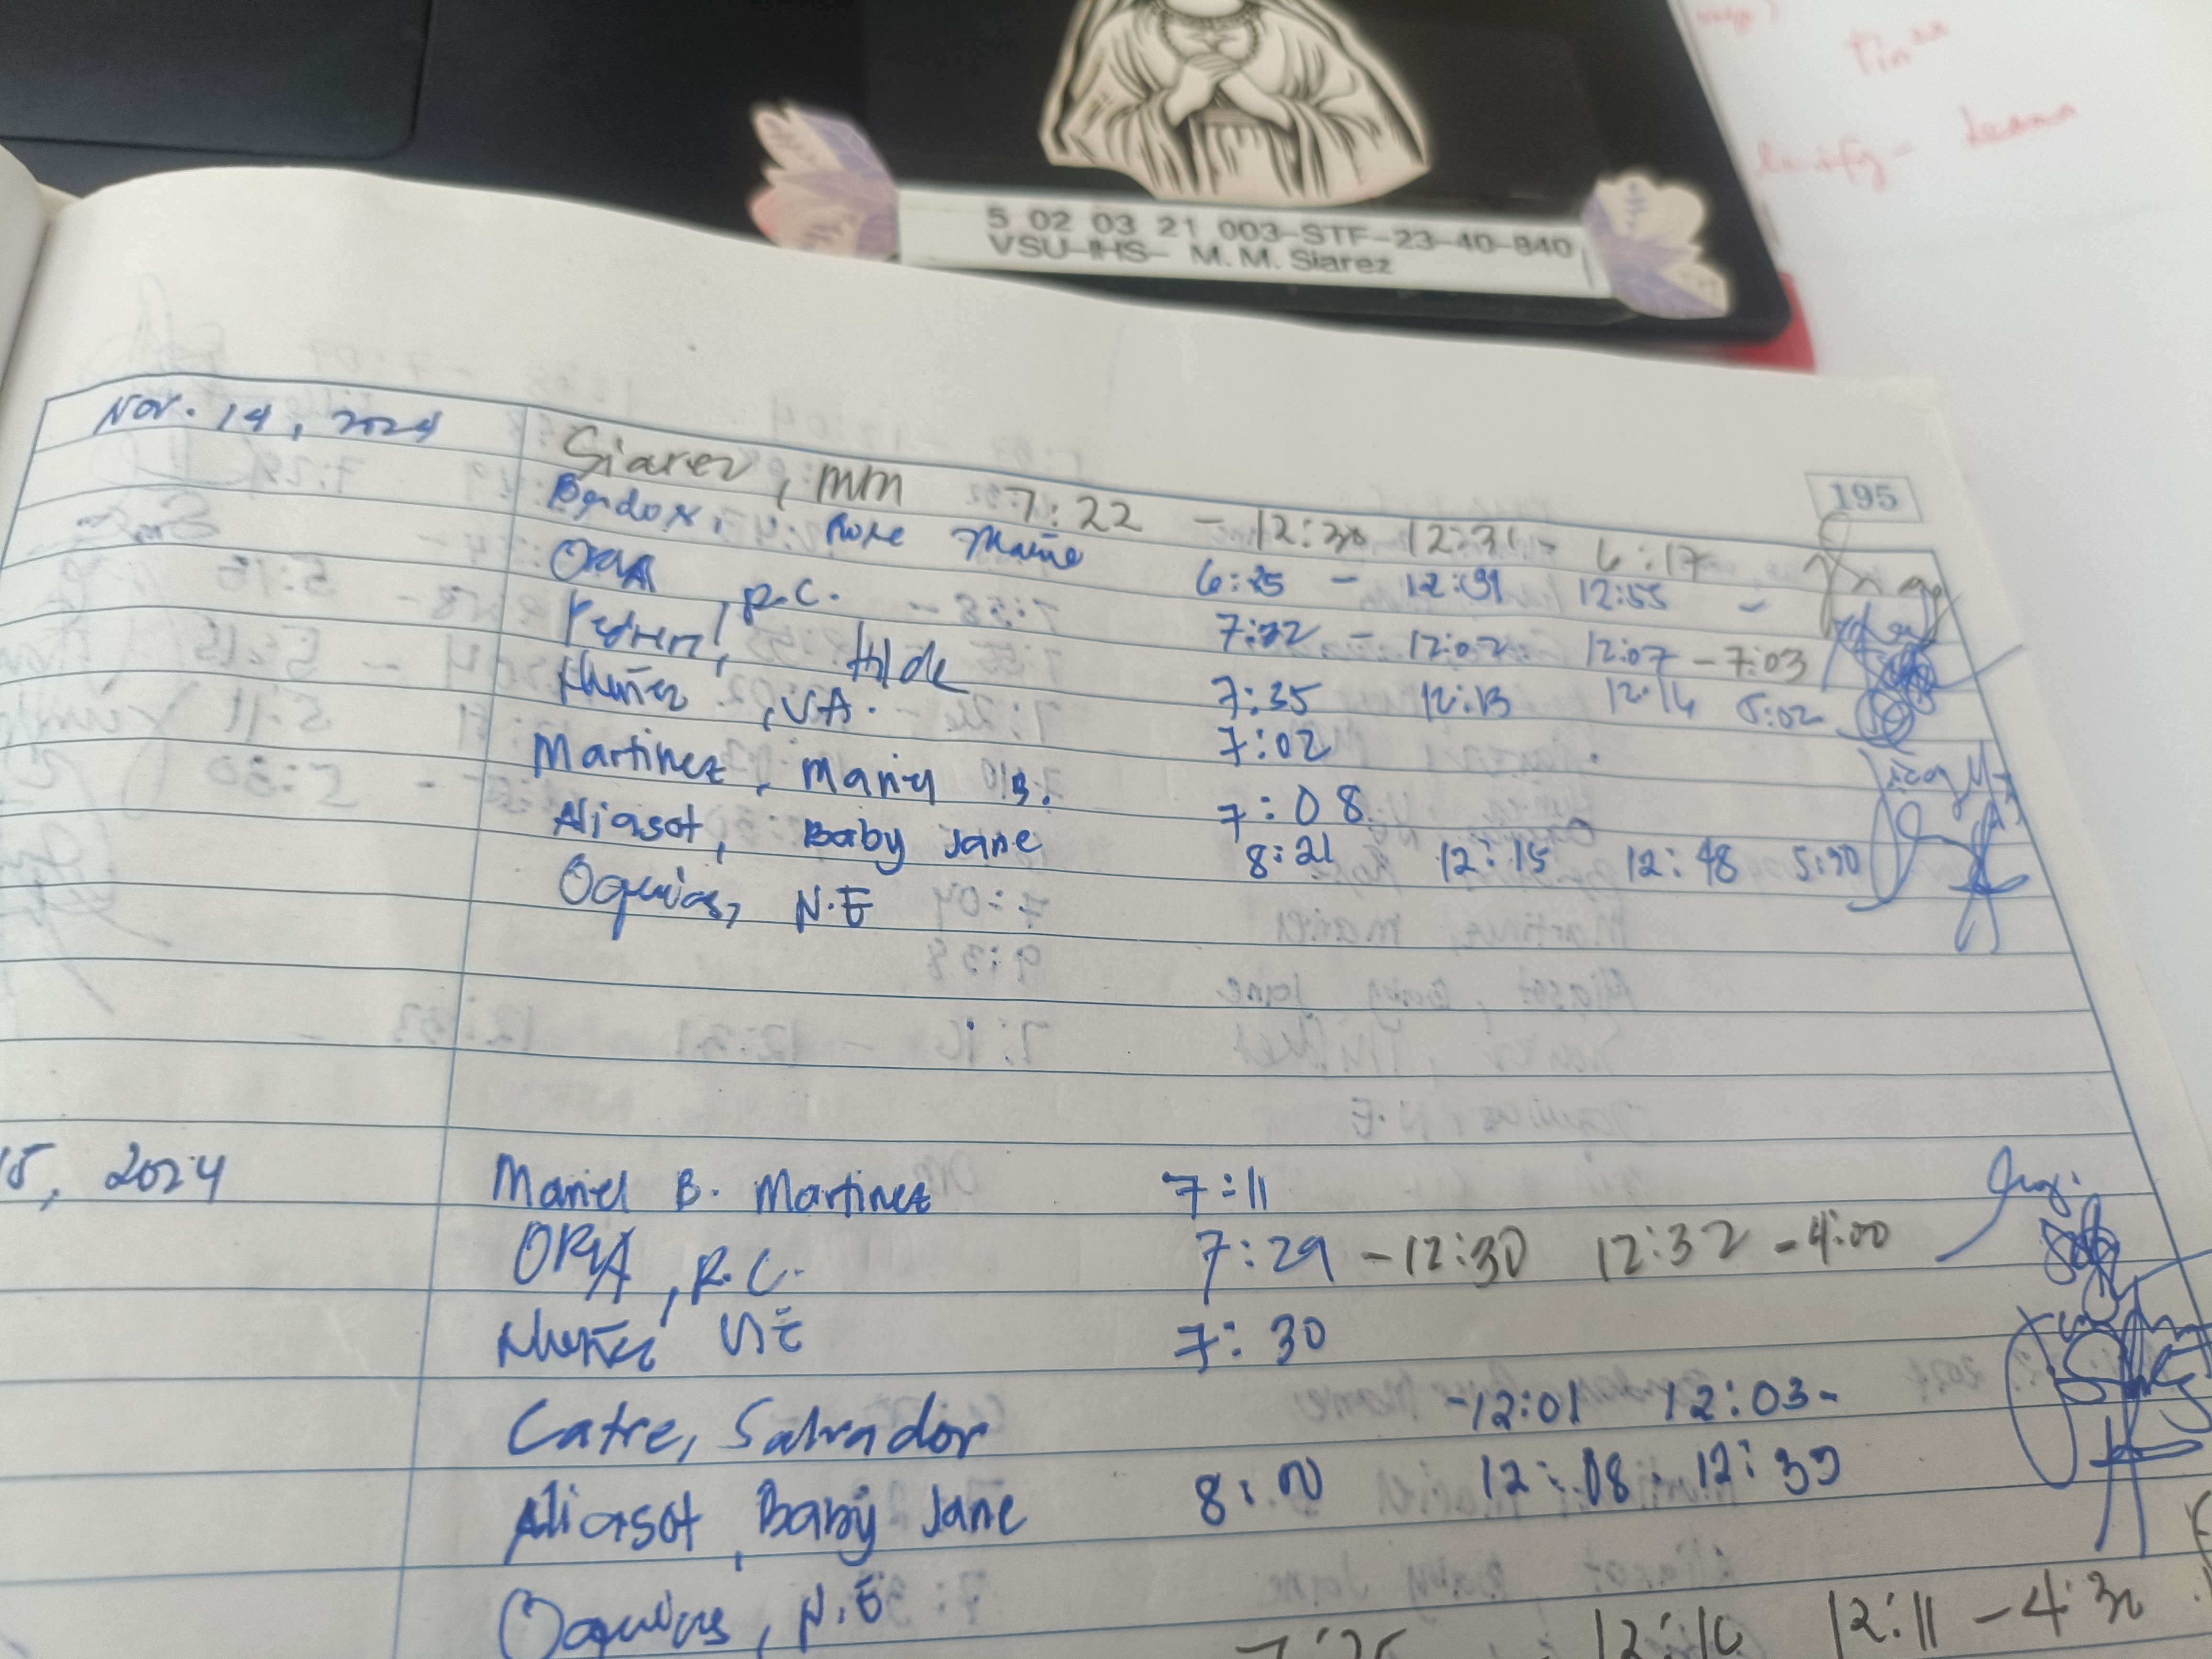 Tin
5 02 03 21 003-STF-23-40-940
VSU-IHS- M. M. Siarez
195
Nov. 14, 2024 Siarez, MM 7:22 - 12:30 12:31 - 6:17
Rose Maine 6:25 - 12:31 12:55 -
ORIA, R.C. 7:22 - 12:02 12:07 - 7:03
Hilde 7:35 12:13 12:14 5:02
Nuñez, V.A. 7:02
Martinez, Mariel B. 7:08
Aliasot, Baby Jane 8:21 12:15 12:48 5:30
Oquias, N.E
15, 2024 Mariel B. Martinez 7:11
ORIA, R.C. 7:29 - 12:30 12:32 - 4:00
Nuñez 7:30
Catre, Salvador -12:01 12:03-
Aliasot, Baby Jane 8:00 12:08 12:39
Oquias, N.E 12:10 12:11 - 4:30